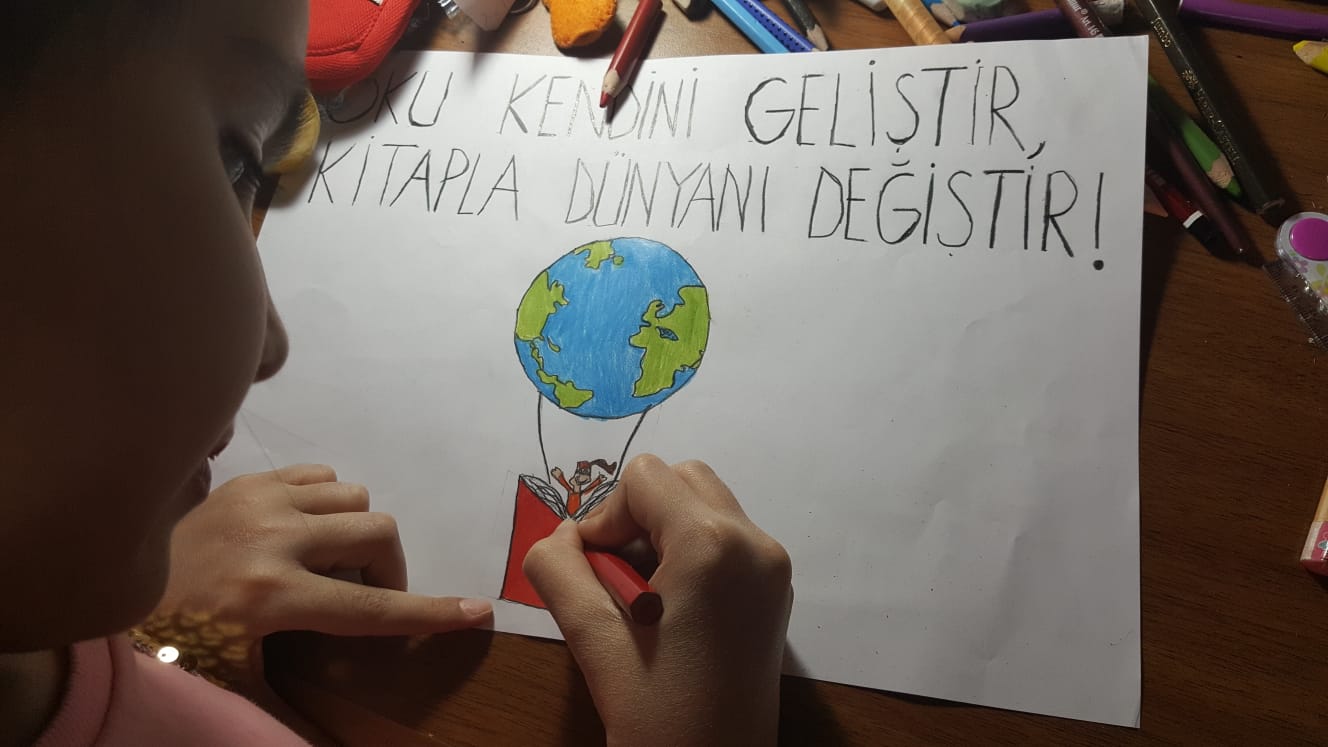 OKU KENDİNİ GELİŞTİR,
KİTAPLA DÜNYANI DEĞİŞTİR!